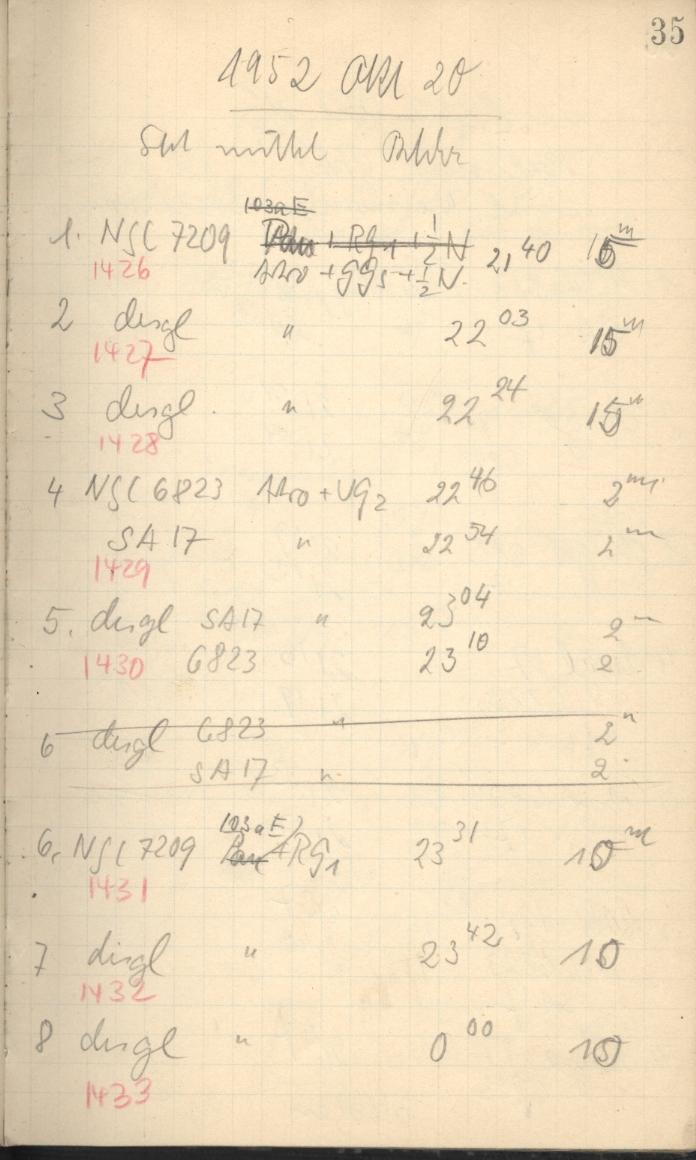 35
1952 Okt 20
Sht mittel Bilder
103aE
1. NGC 7209 Pan + RG1 + 1/2 N 21 40 15 m
1426 Astro + GG5 + 1/2 N.
2 desgl " 22 03 15 m
1427
3 desgl. " 22 24 15 m
1428
4 NGC 6823 Astro + UG2 22 46 2 m
SA 17 " 22 54 2 m
1429
5. desgl SA17 " 23 04 2 m
1430 6823 23 10 2
6 desgl 6823 " 2 m
SA 17 " 2
103aE
6. NGC 7209 Pan + RG1 23 31 10 m
1431
7 desgl " 23 42 10
1432
8 desgl " 0 00 10
1433